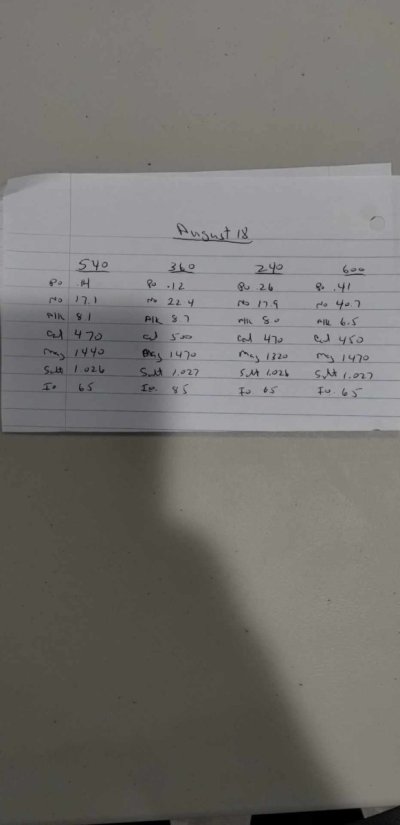 August 18
540 360 240 600
Po Po .12 Po .26 Po .41
No 17.1 No 22.4 No 17.9 No 40.7
Alk 8.1 Alk 8.7 Alk 8.0 Alk 6.5
Cal 470 Cal 500 Cal 470 Cal 450
Mag 1440 Mag 1470 Mag 1320 Mag 1470
Salt 1.026 Salt 1.027 Salt 1.026 Salt 1.027
Io. 65 Io. 85 Io. 65 Io. 65